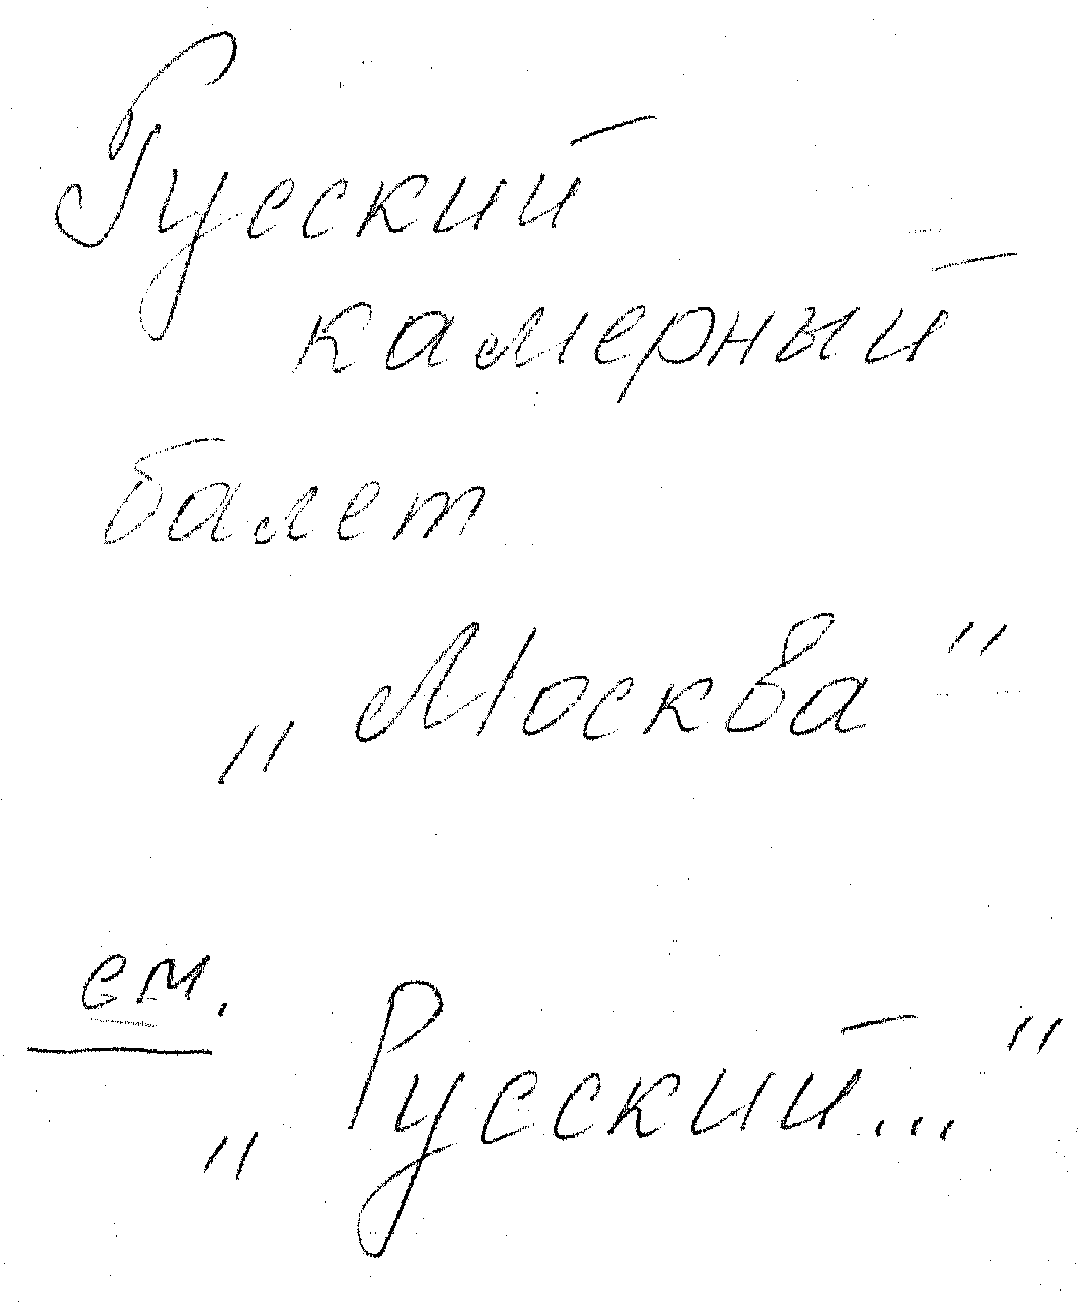 Русский
камерный
балет
„Москва"
см.
„Русский..."